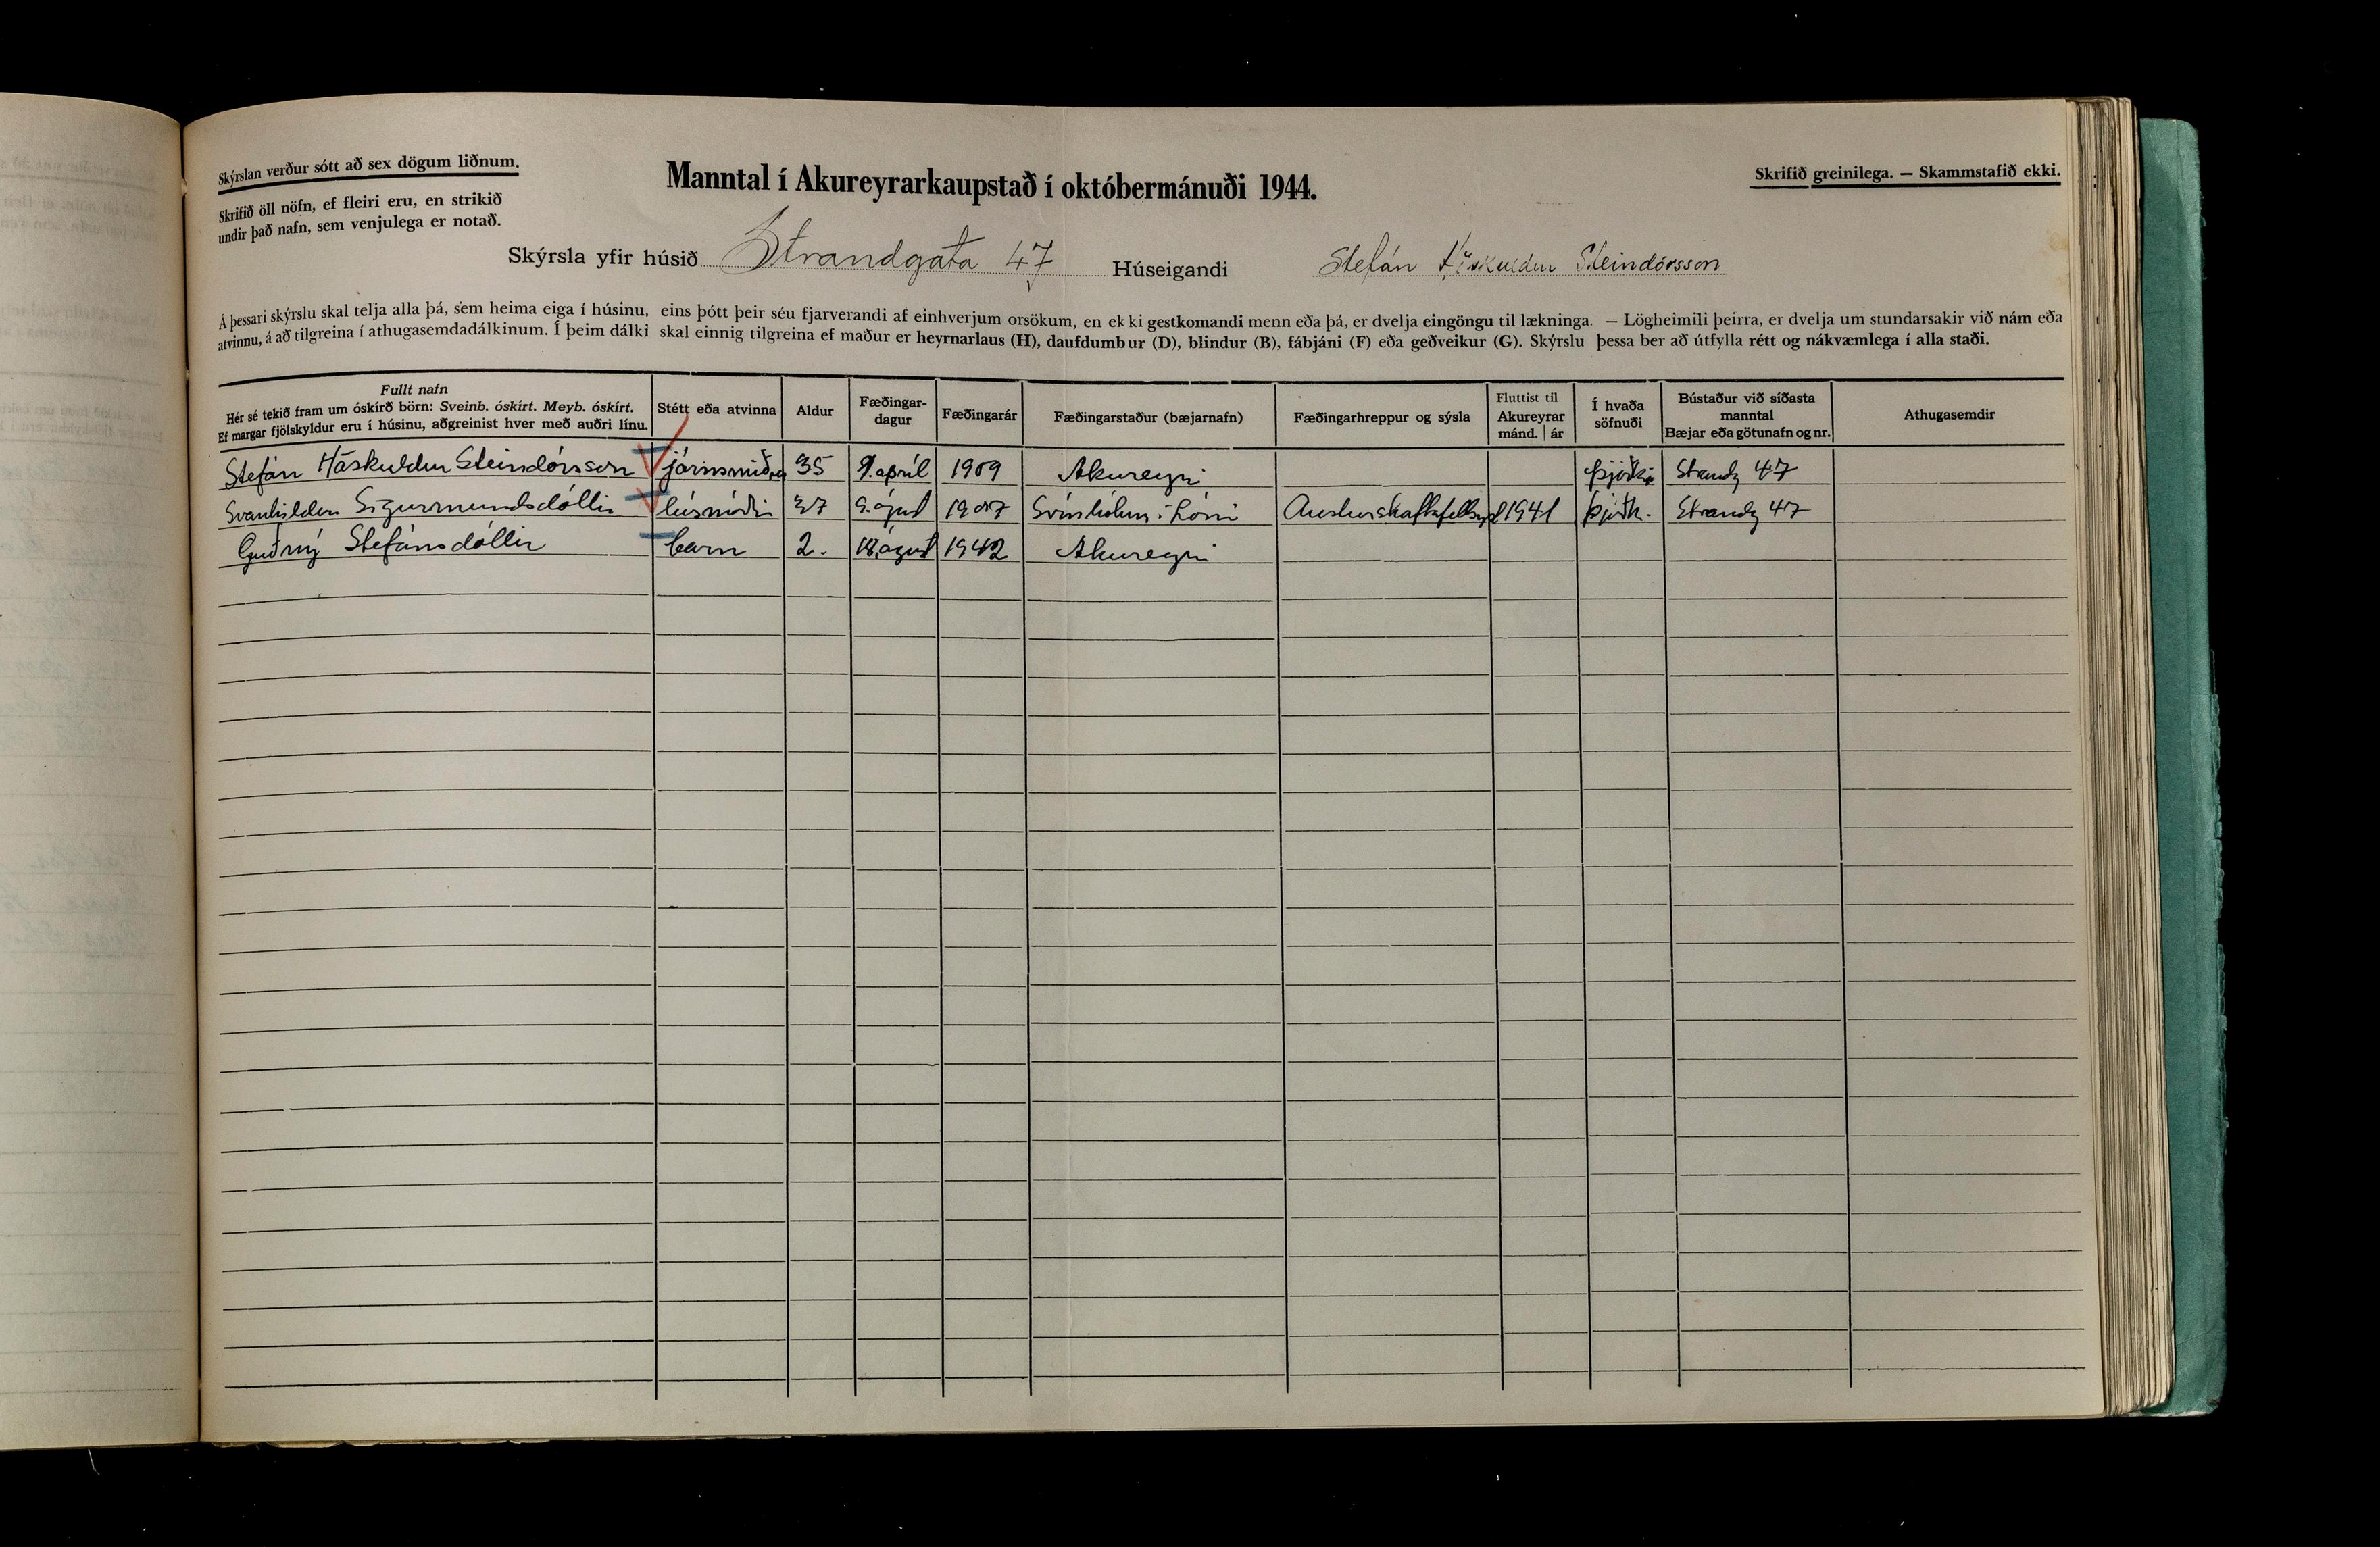 Skýrslan verður sótt að sex dögum liðnum.
Skrifið öll nöfn, ef fleiri eru, en strikið
undir það nafn, sem venjulega er notað.
Manntal í Akureyrarkaupstað í októbermánuði 1944.
Skrifið greinilega. — Skammstafið ekki.
Skýrsla yfir húsið Strandgata 47 Húseigandi Stefán Höskuldur Steindórsson
Á þessari skýrslu skal telja alla þá, sem heima eiga í húsinu, eins þótt þeir séu fjarverandi af einhverjum orsökum, en ekki gestkomandi menn eða þá, er dvelja eingöngu til lækninga. — Lögheimili þeirra, er dvelja um stundarsakir við nám eða
atvinnu, á að tilgreina í athugasemdadálkinum. Í þeim dálki skal einnig tilgreina ef maður er heyrnarlaus (H), daufdumbur (D), blindur (B), fábjáni (F) eða geðveikur (G). Skýrslu þessa ber að útfylla rétt og nákvæmlega í alla staði.
Fullt nafn
Hér sé tekið fram um óskírð börn: Sveinb. óskírt. Meyb. óskírt.
Ef margar fjölskyldur eru í húsinu, aðgreinist hver með auðri línu.
Stétt eða atvinna
Aldur
Fæðingar-
dagur
Fæðingarár
Fæðingarstaður (bæjarnafn)
Fæðingarhreppur og sýsla
Fluttist til
Akureyrar
mánd. | ár
Í hvaða
söfnuði
Bústaður við síðasta
manntal
Bæjar eða götunafn og nr.
Athugasemdir
Stefán Höskuldur Steindórsson járnsmiður 35 9. apríl 1909 Akureyri Strandg 47
Svanhildur Sigurmundsdóttir húsmóðir 37 9. ágúst 1907 Svínhólum í Lóni 1941 þjóðk. Strandg 47
Guðný Stefánsdóttir barn 2. 18. ágúst 1942 Akureyri